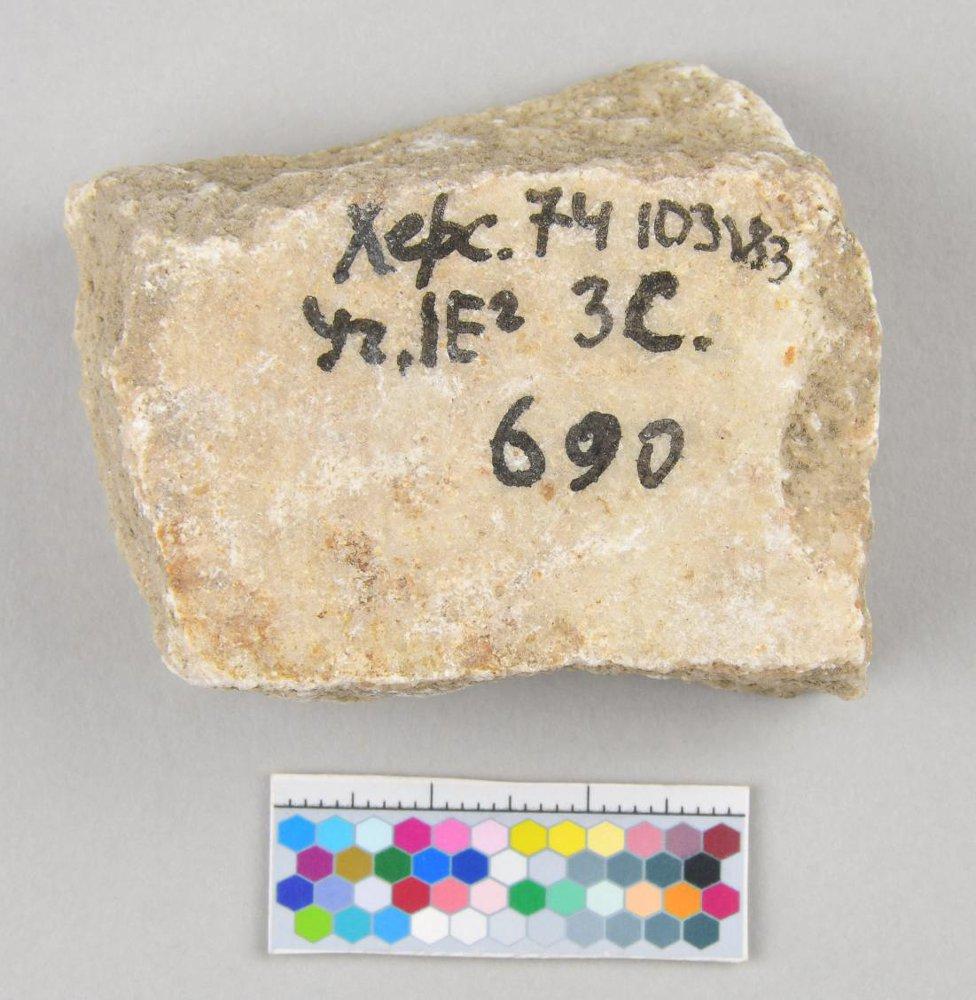 Херс. 74 103183
Уг. IE² 3С.
690